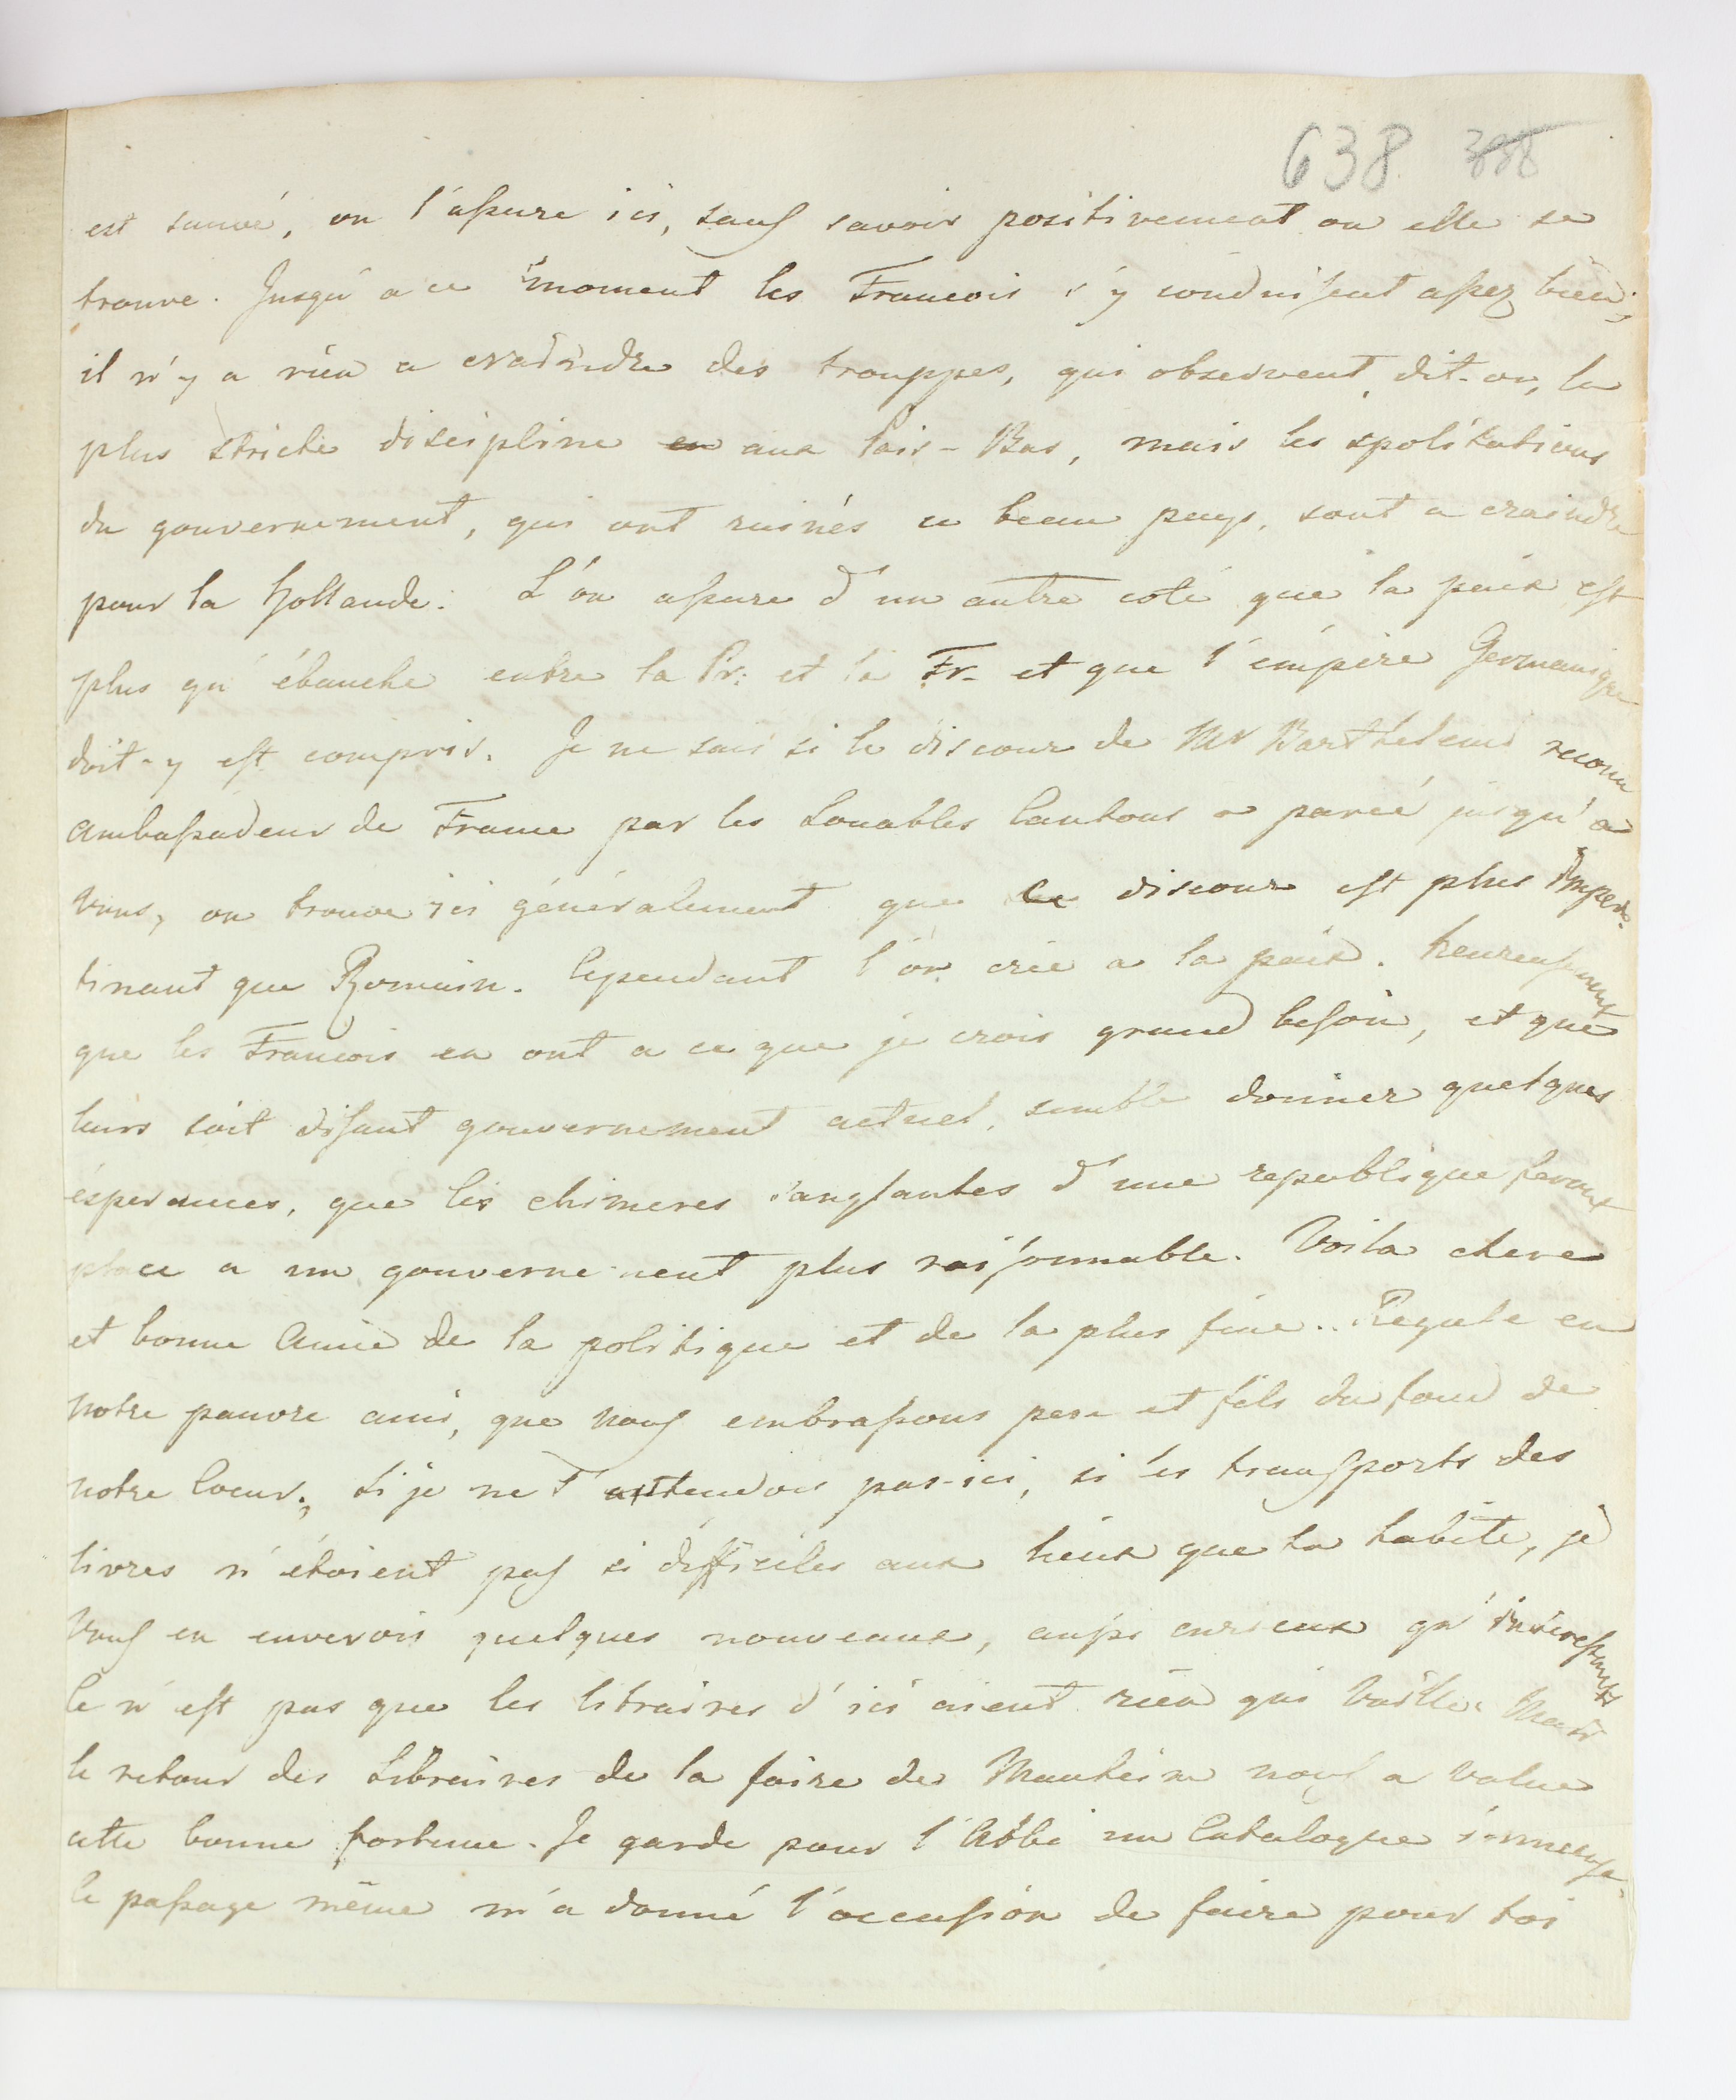 638 338
est sauvé, on l'assure ici, sauf savoir positivement ou elle se
trouve. Jusqu'a ce moment les Francois s'y conduisent assez bien;
il n'y a rien a craindre des trouppes, qui observent, dit-on, la
plus stricte discipline en aux Pais-Bas, mais les spoliations
du gouvernement, qui ont ruinés ce beau pays, sont a craindre
pour la Hollande. L'on assure d'un autre coté que la paix est
plus qu'ébauche entre la Pr: et la Fr. et que l'empire Germanique
doit-y est compris. Je ne sais si le discour de Mr Barthelemi reconu
Ambassadeur de France par les Louables Cantons a parcé jusqu'a
vous, on trouve ici généralement que ce discour est plus Imper-
tinant que Romain. Cependant l'on crie a la paix. heureusement
que les Francois en ont a ce que je crois grand besoin, et que
leurs soit disant gouvernement actuel, semble donner quelques
ésperances, que les chimeres sanglantes d'une republique feront
place a un gouvernement plus raisonnable. Voila chere
et bonne Amie de la politique et de la plus fine.. Regale en
notre pauvre ami, que nous embrassons pere et fils du fond de
notre Coeur; si je ne t'attendois pas-ici, si les transports des
livres n'étoient pas si difficiles aux lieux que tu habite, je
vous en enverois quelques nouveaux, aussi curieux qu'interessants
Ce n'est pas que les libraires d'ici aient rien qui vaille. Mais
le retour des Libraires de la foire de Manheim nous a value
cette bonne fortune. Je garde pour l'Abbé un Catalogue immense.
le passage même m'a donné l'occasion de faire pour toi